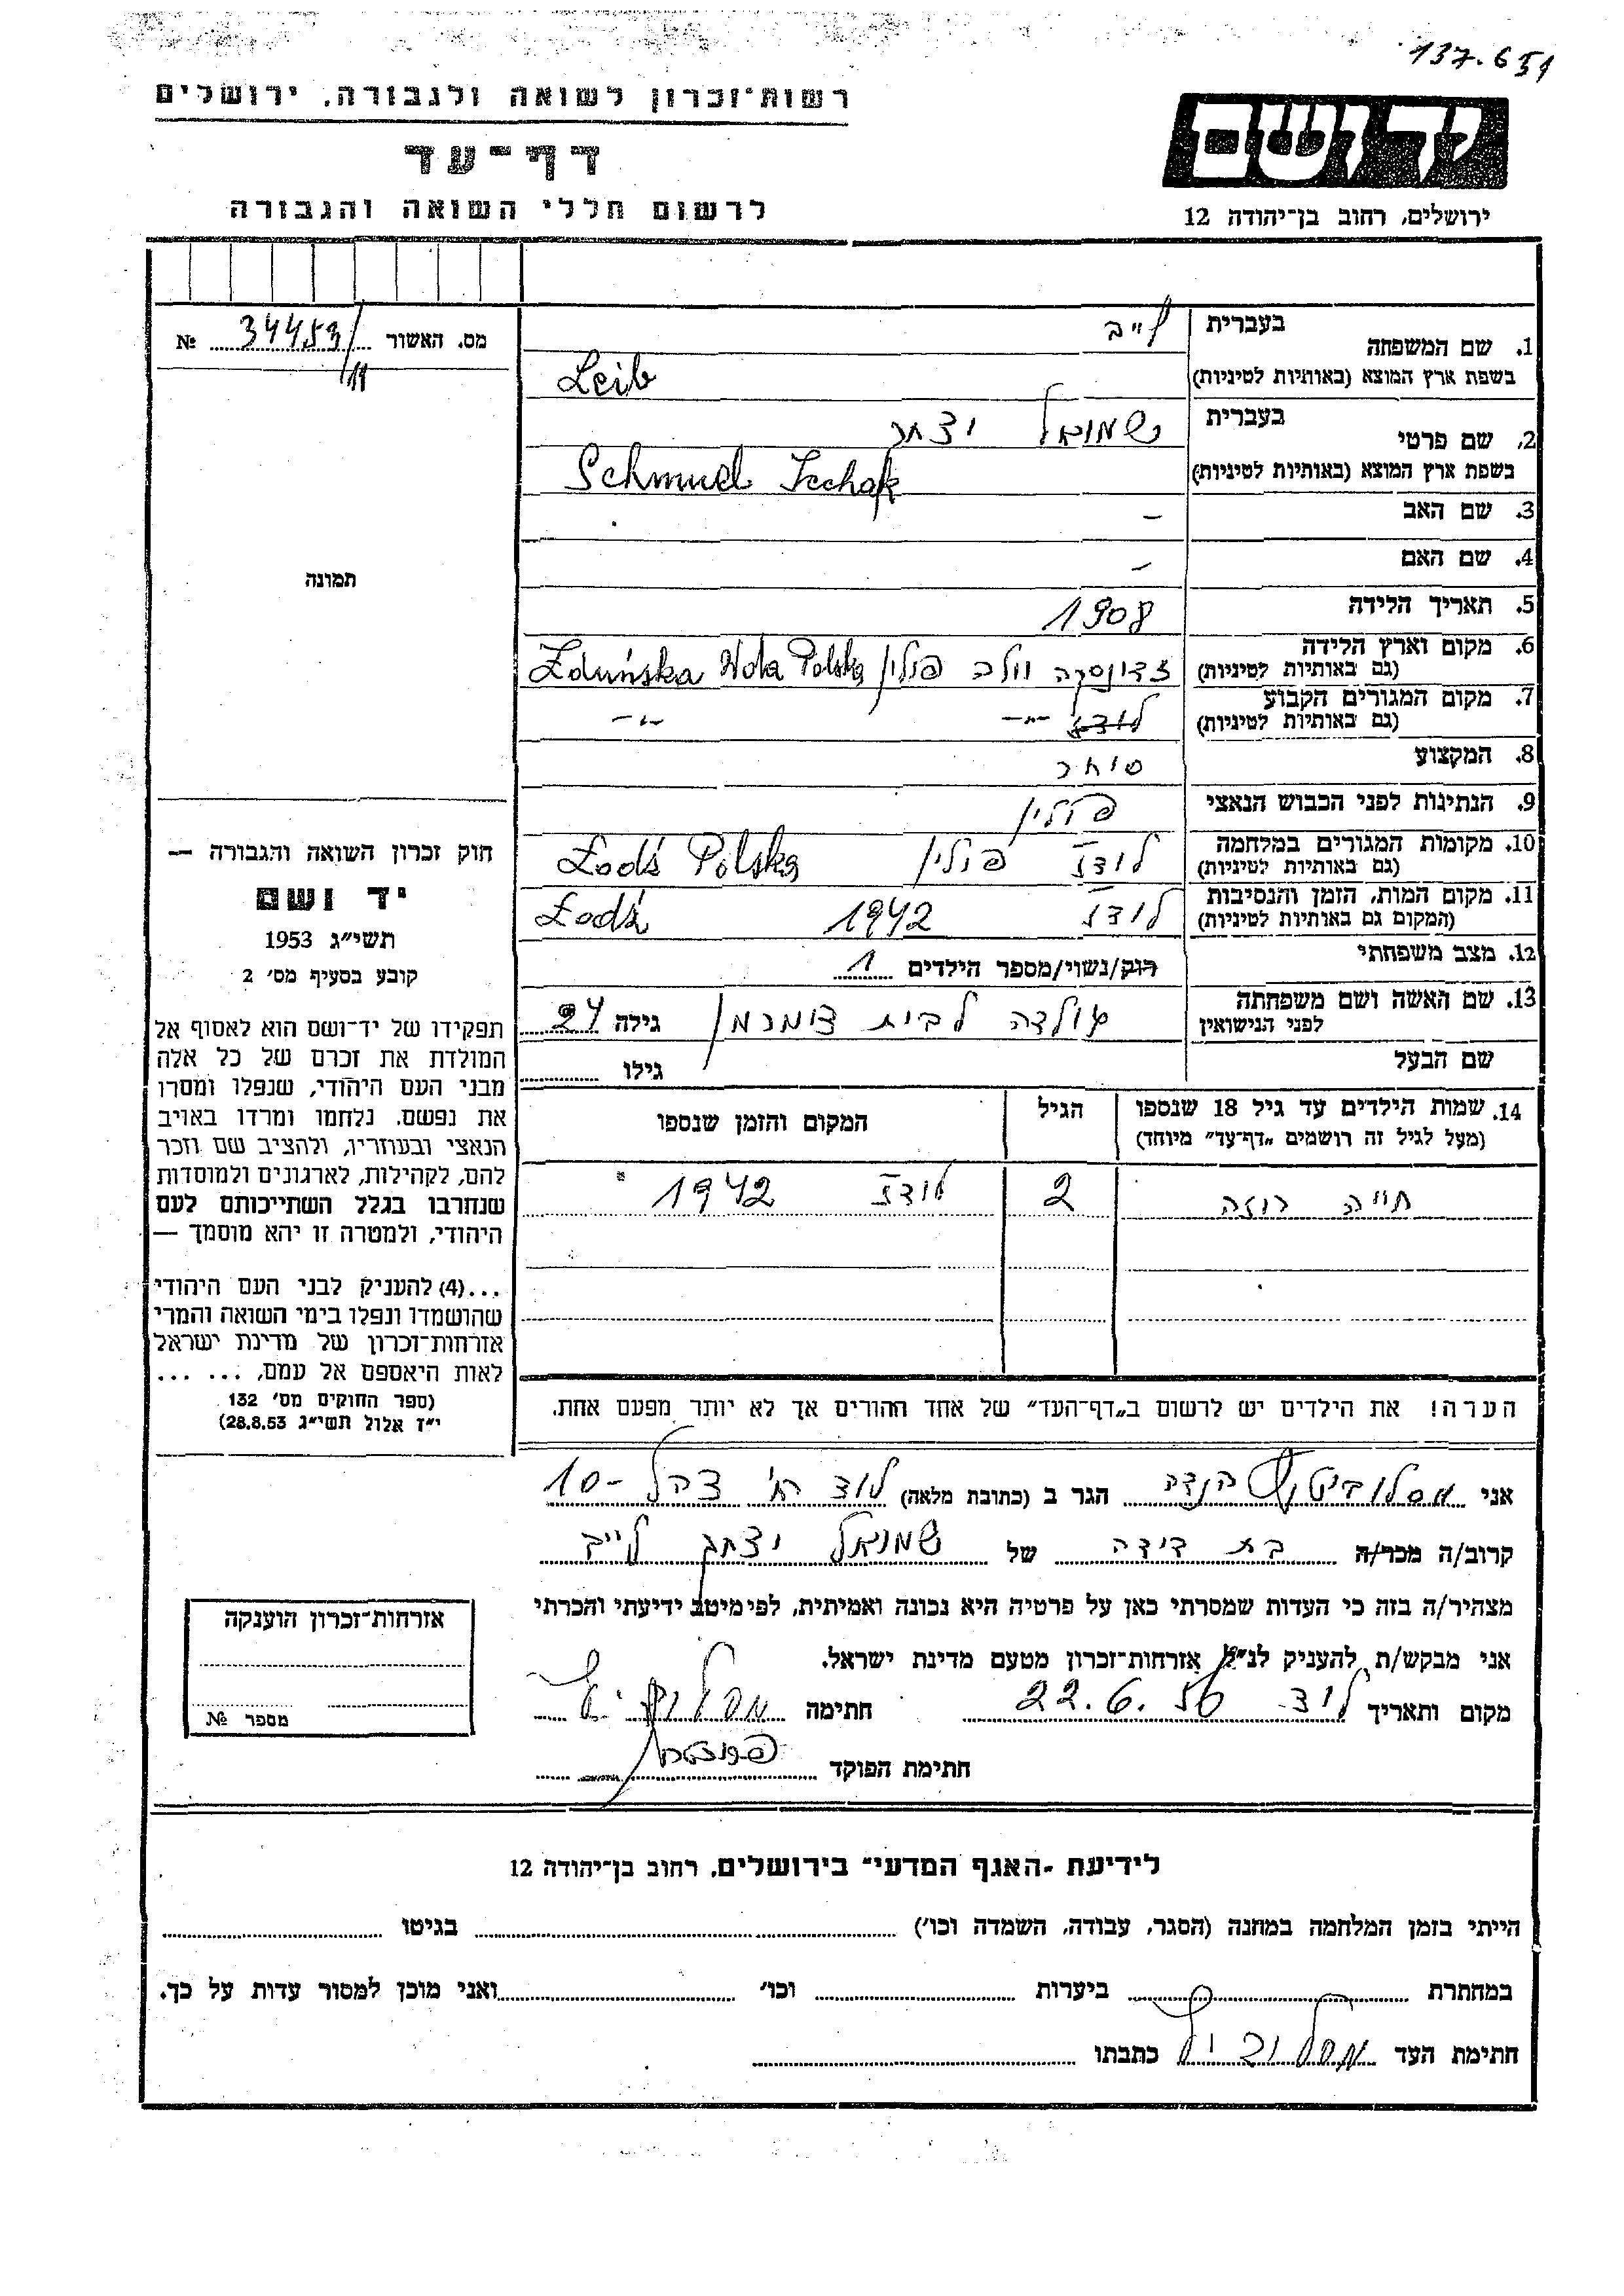 137.651
רשות־זכרון לשואה ולגבורה, ירושלים
דף־עד
לרשום חללי השואה והגבורה
ידושם
ירושלים, רחוב בן־יהודה 12
מס. האשור 34453/ №
11
תמונה
1. שם המשפחה בעברית לייב
בשפת ארץ המוצא (באותיות לטיניות) Leib
2. שם פרטי בעברית שמואל יצחק
בשפת ארץ המוצא (באותיות לטיניות) Schmuel Icchak
3. שם האב –
4. שם האם –
5. תאריך הלידה 1908
6. מקום וארץ הלידה (גם באותיות לטיניות) זדונסקה וולה פולין Zduńska Wola Polska
7. מקום המגורים הקבוע (גם באותיות לטיניות) לודז –"– –"–
8. המקצוע סוחר
9. הנתינות לפני הכבוש הנאצי פולין
10. מקומות המגורים במלחמה (גם באותיות לטיניות) לודז פולין Łodź Polska
11. מקום המות, הזמן והנסיבות (המקום גם באותיות לטיניות) לודז 1942 Łodź
12. מצב משפחתי רוק/נשוי/מספר הילדים 1
13. שם האשה ושם משפחתה לפני הנישואין לבית גילה 24
שם הבעל גילו
14. שמות הילדים עד גיל 18 שנספו (מעל לגיל זה רושמים „דף־עד” מיוחד) הגיל המקום והזמן שנספו
חייה רוזה 2 לודז 1942
הערה! את הילדים יש לרשום ב„דף־העד” של אחד ההורים אך לא יותר מפעם אחת.
חוק זכרון השואה והגבורה —
יד ושם
תשי״ג 1953
קובע בסעיף מס׳ 2
תפקידו של יד־ושם הוא לאסוף אל
המולדת את זכרם של כל אלה
מבני העם היהודי, שנפלו ומסרו
את נפשם, נלחמו ומרדו באויב
הנאצי ובעוזריו, ולהציב שם וזכר
להם, לקהילות, לארגונים ולמוסדות
שנחרבו בגלל השתייכותם לעם
היהודי, ולמטרה זו יהא מוסמך —
...(4) להעניק לבני העם היהודי
שהושמדו ונפלו בימי השואה והמרי
אזרחות־זכרון של מדינת ישראל
לאות היאספם אל עמם, ... ...
(ספר החוקים מס׳ 132
י״ז אלול תשי״ג 28.8.53)
אני הגר ב (כתובת מלאה) לוד רח׳ צהל 10–
קרוב/ה מכר/ה בת דודה של שמואל יצחק לייב
מצהיר/ה בזה כי העדות שמסרתי כאן על פרטיה היא נכונה ואמיתית, לפי מיטב ידיעתי והכרתי
אני מבקש/ת להעניק לנ״ל אזרחות־זכרון מטעם מדינת ישראל.
מקום ותאריך לוד 22.6.56 חתימה
חתימת הפוקד
אזרחות־זכרון הוענקה
מספר №
לידיעת „האגף המדעי״ בירושלים, רחוב בן־יהודה 12
הייתי בזמן המלחמה במחנה (הסגר, עבודה, השמדה וכו׳) בגיטו
במחתרת ביערות וכו׳ ואני מוכן למסור עדות על כך.
חתימת העד כתבתו